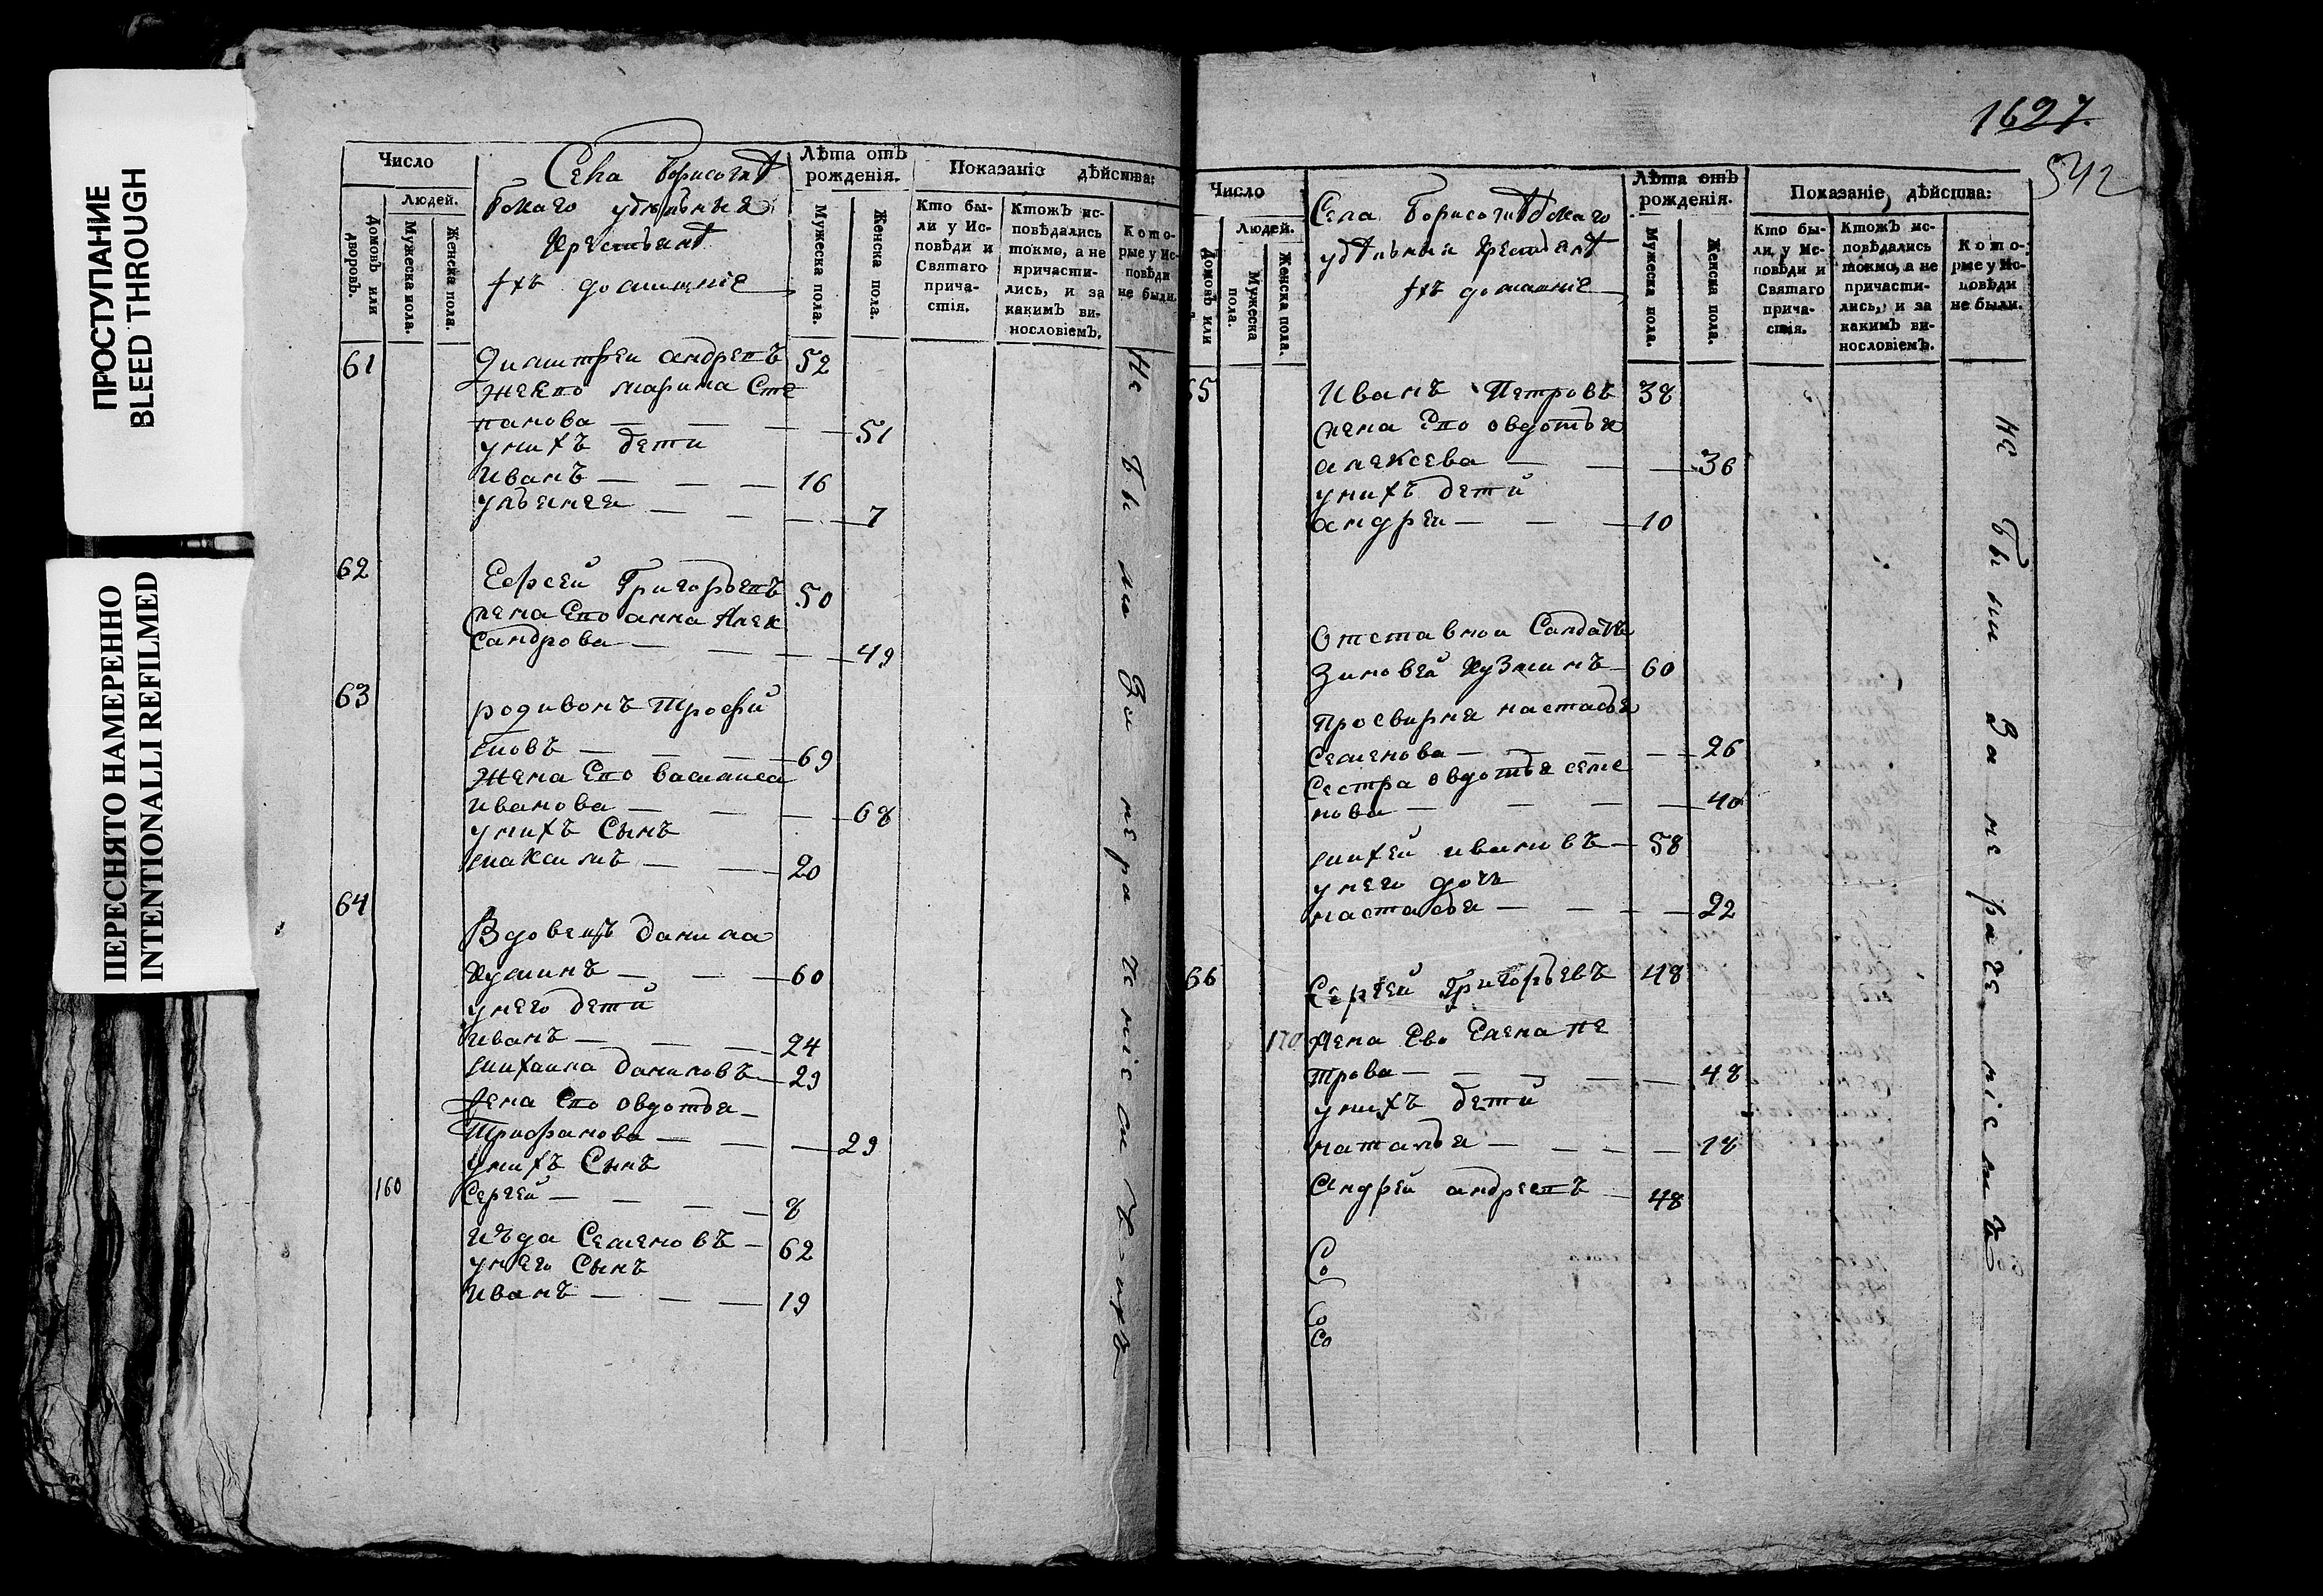 ПРОСТУПАНИЕ
BLEED THROUGH
ПЕРЕСНЯТО НАМЕРЕННО
INTENTIONALLI REFILMED
Число
Людей.
Домовъ или дворовъ.
Мужеска пола.
Женска пола.
Села Борисоглѣ
бскаго удѣльныя
Крестьянѣ
ихъ домашніе
Лѣта отъ рожденія.
Мужеска пола.
Женска пола.
Показаніе дѣйства:
Кто бы-
ли у Ис-
повѣди и
Святаго
прича-
стія.
Ктожъ ис-
повѣдались
токмо, а не
причасти-
лись, и за
какимъ ви-
нословіемъ.
Кото-
рые у Ис-
повѣди
не были.
61 Димитреи андреевъ 52
жена его марина Сте
панова — — — 51
унихъ дети
Иванъ — — — 16
ульянея — — — 7
62 Григорьевъ 50
жена его анна Алек
сандрова — — — 49
63 родивонъ Трофи
мовъ — — — 69
Жена его василиса
Иванова — — — 68
унихъ Сынъ
максимъ — — 20
64 Вдовецъ данила
60
унего дети
Иванъ — — — 24
михаила даниловъ — 29
жена его овдотья —
Трифанова — — — 29
унихъ Сынъ
160 Сергей — — — 8
Семеновъ — 62
унего Сынъ
Иванъ — — — 19
Не были За нераченіемъ
1627
542
Число
Людей.
Домовъ или
Мужеска пола.
Женска пола.
Села Борисоглѣбскаго
удѣльныя Крестьянѣ
ихъ домашніе
Лѣта отъ рожденія.
Мужеска пола.
Женска пола.
Показаніе, дѣйства:
Кто бы-
ли у Ис-
повѣди и
Святаго
прича-
стія.
Ктожъ ис-
повѣдались
токмо, а не
причасти-
лись, и за
какимъ ви-
нословіемъ.
Кото-
рые у Ис-
повѣди
не были.
65 Иванъ Петровъ 38
жена его овдотья
алексева — — — 36
унихъ дети
андреи — — — 10
Отставнои Салдатъ
Зиновей Кузминъ — 60
просвирня настасья
семенова — — — 26
Сестра овдотья семе
нова — — — 40
михей ивановъ — 58
унего дочь
настасья — — — 22
66 Сергей Григорьевъ 48
170 Жена Ево Елена пе
трова — — — 48
унихъ дети
наталья — — — 18
андрей андреевъ — 48
Не были За нераченіемъ